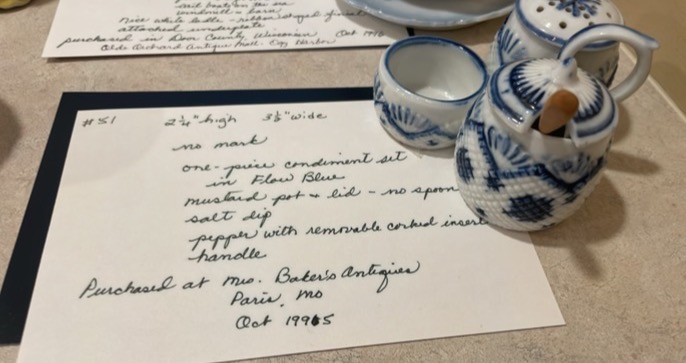 sail boats on the sea
windmill + barn
nice white ladle - ribbon edged finial
attached underplate
purchased in Door County, Wisconsin Oct 1996
Olde Orchard Antique Mall - Egg Harbor
#51 2 1/4" high 3 1/2" wide
no mark
one-piece condiment set
in Flow Blue
mustard pot + lid - no spoon
salt dip
pepper with removable corked insert
handle
Purchased at Mrs. Baker's Antiques
Paris, Mo
Oct 1995